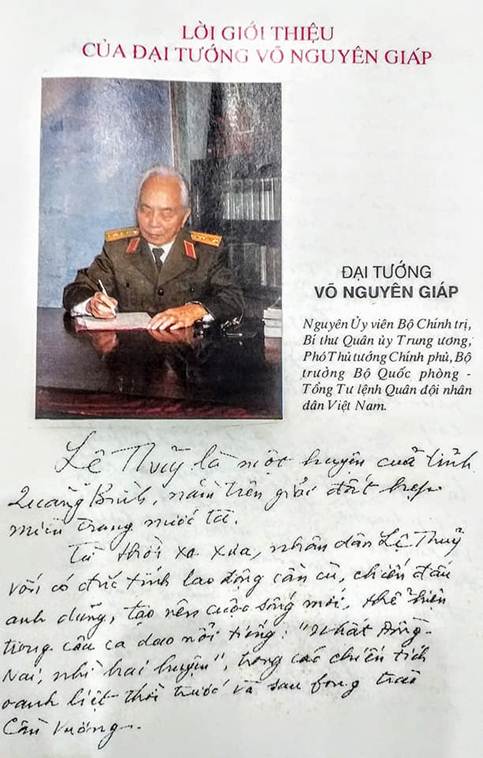 LỜI GIỚI THIỆU
CỦA ĐẠI TƯỚNG VÕ NGUYÊN GIÁP
ĐẠI TƯỚNG
VÕ NGUYÊN GIÁP
Nguyên Ủy viên Bộ Chính trị,
Bí thư Quân ủy Trung ương,
Phó Thủ tướng Chính phủ, Bộ
trưởng Bộ Quốc phòng -
Tổng Tư lệnh Quân đội nhân
dân Việt Nam.
Lệ Thuỷ là một huyện của tỉnh
Quảng Bình, nằm trên giải đất hẹp
miền Trung nước ta.
Từ thời xa xưa, nhân dân Lệ Thuỷ
vốn có đức tính lao động cần cù, chiến đấu
anh dũng, tạo nên cuộc sống mới, thể hiện
trong câu ca dao nổi tiếng: "Nhất Đồng
Nai, nhì hai huyện", trong các chiến tích
oanh liệt thời trước và sau fong trào
Cần Vương.